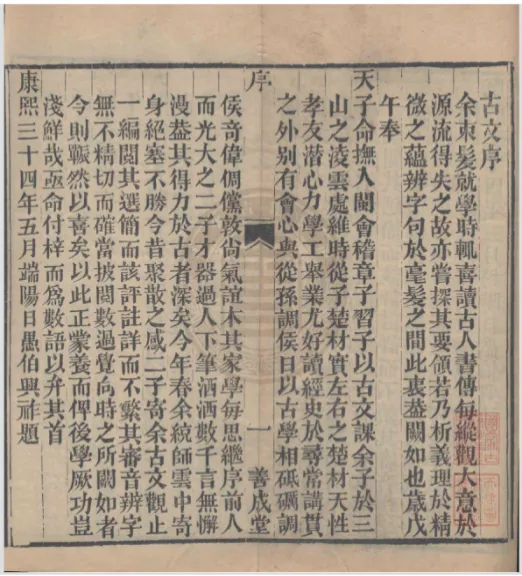 古文序
余束髮就學時輒喜讀古人書傳每縱觀大意於
源流得失之故亦嘗探其要領若乃析義理於精
微之蘊辨字句於毫髮之間此衷葢闕如也歲戊
午奉
天子命撫入閩會稽章子習子以古文課余子於三
山之凌雲處維時從子楚材實左右之楚材天性
孝友潛心力學工舉業尤好讀經史於尋常講貫
之外别有會心與從孫調侯日以古學相砥礪調
序
一
善成堂
侯奇偉倜儻敦尚氣誼本其家學每思繼序前人
而光大之二子才器過人下筆洒洒數千言無懈
漫葢其得力於古者深矣今年春余統師雲中寄
身絕塞不勝今昔聚散之感二子寄余古文觀止
一編閱其選簡而該評註詳而不繁其審音辨字
無不精切而確當披閱數過覺向時之所闕如者
今則囅然以喜矣以此正蒙養而俾後學厥功豈
淺鮮哉亟命付梓而爲數語以弁其首
康熙三十四年五月端陽日愚伯興祚題